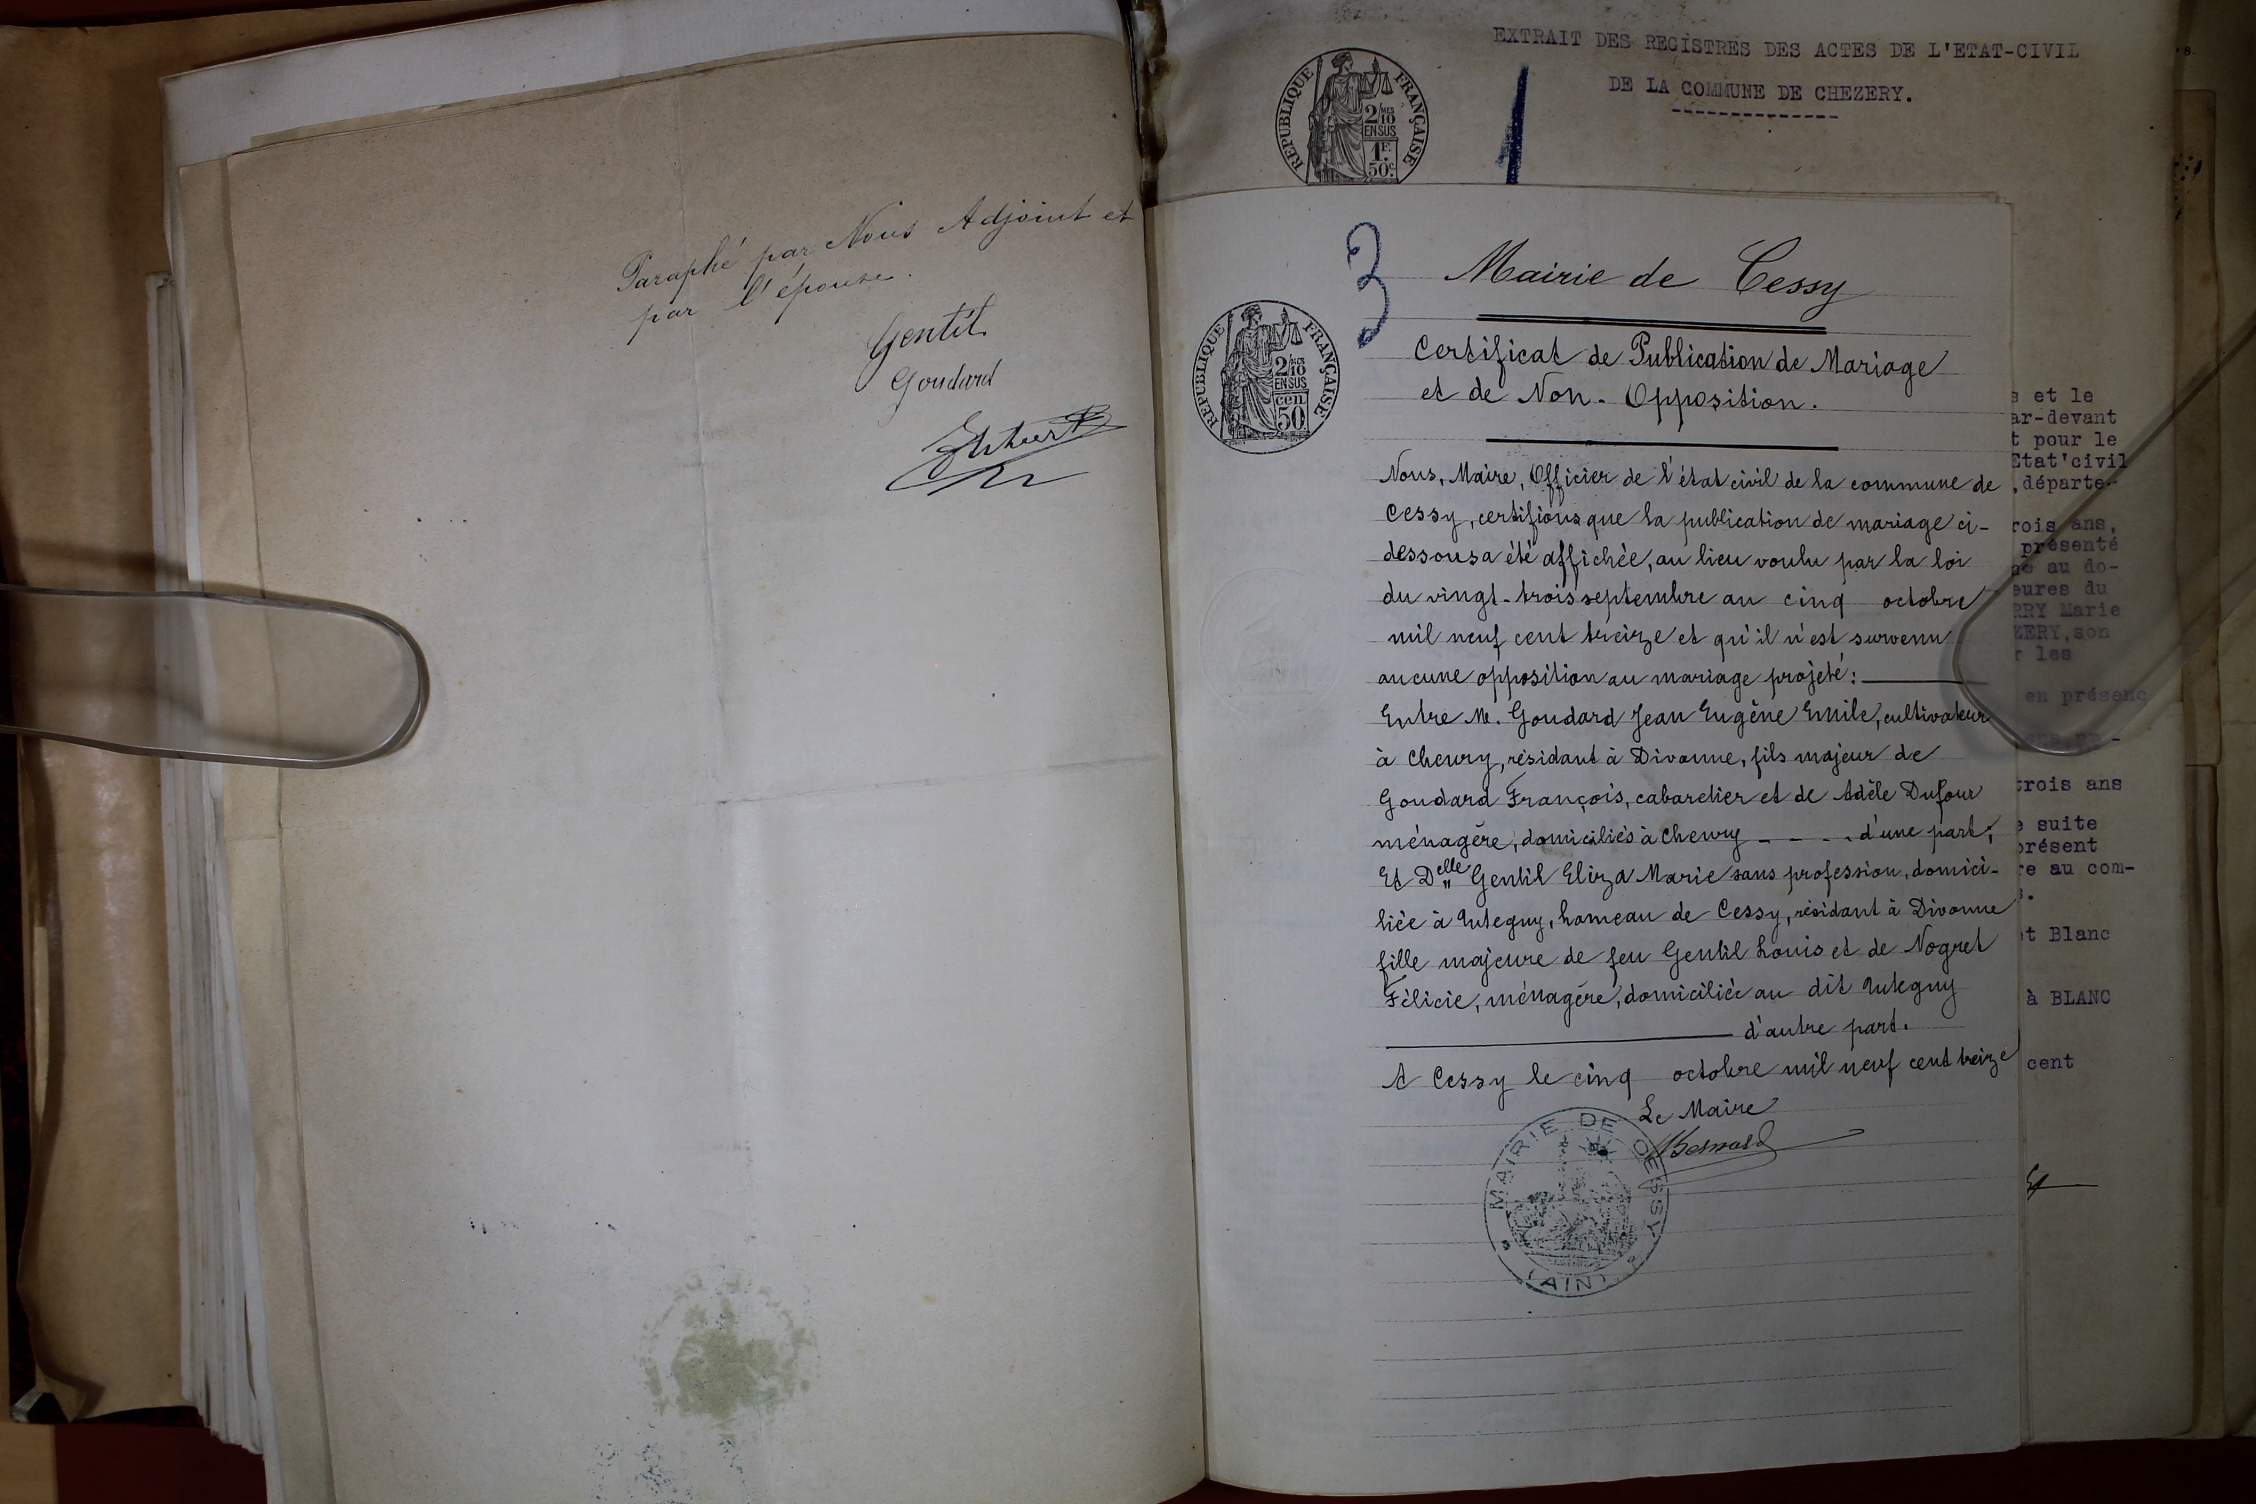 Paraphé par Nous Adjoint et
par l'épouse.
Gentil
Goudard
EXTRAIT DES REGISTRES DES ACTES DE L'ETAT-CIVIL
DE LA COMMUNE DE CHEZERY.
RÉPUBLIQUE FRANÇAISE
2/10 MES
EN SUS
1F.
50c
1
3
Mairie de Cessy
RÉPUBLIQUE FRANÇAISE
2/10 MES
EN SUS
cen
50
Certificat de Publication de Mariage
et de Non-Opposition.
Nous, Maire, Officier de l'état civil de la commune de
Cessy, certifions que la publication de mariage ci-
dessous a été affichée, au lieu voulu par la loi
du vingt-trois septembre au cinq octobre
mil neuf cent treize et qu'il n'est survenu
aucune opposition au mariage projeté :
Entre M. Goudard Jean Eugène Emile, cultivateur
à Chevry, résidant à Divonne, fils majeur de
Goudard François, cabaretier et de Adèle Dufour
ménagère, domiciliés à Chevry - - - - d'une part;
Et Delle Gentil Eliza Marie sans profession, domici-
liée à Integny, hameau de Cessy, résidant à Divonne
fille majeure de feu Gentil Louis et de Nogret
Félicie, ménagère, domiciliée au dit Integny
d'autre part.
A Cessy le cinq octobre mil neuf cent treize
Le Maire
Besnard
MAIRIE DE CESSY
(AIN)
s et le
ar-devant
t pour le
Etat'civil
,départe-
rois ans,
présenté
au do-
eures du
RRY Marie
ZERY, son
r les
en présenc
trois ans
e suite
présent
re au com-
s.
et Blanc
à BLANC
cent